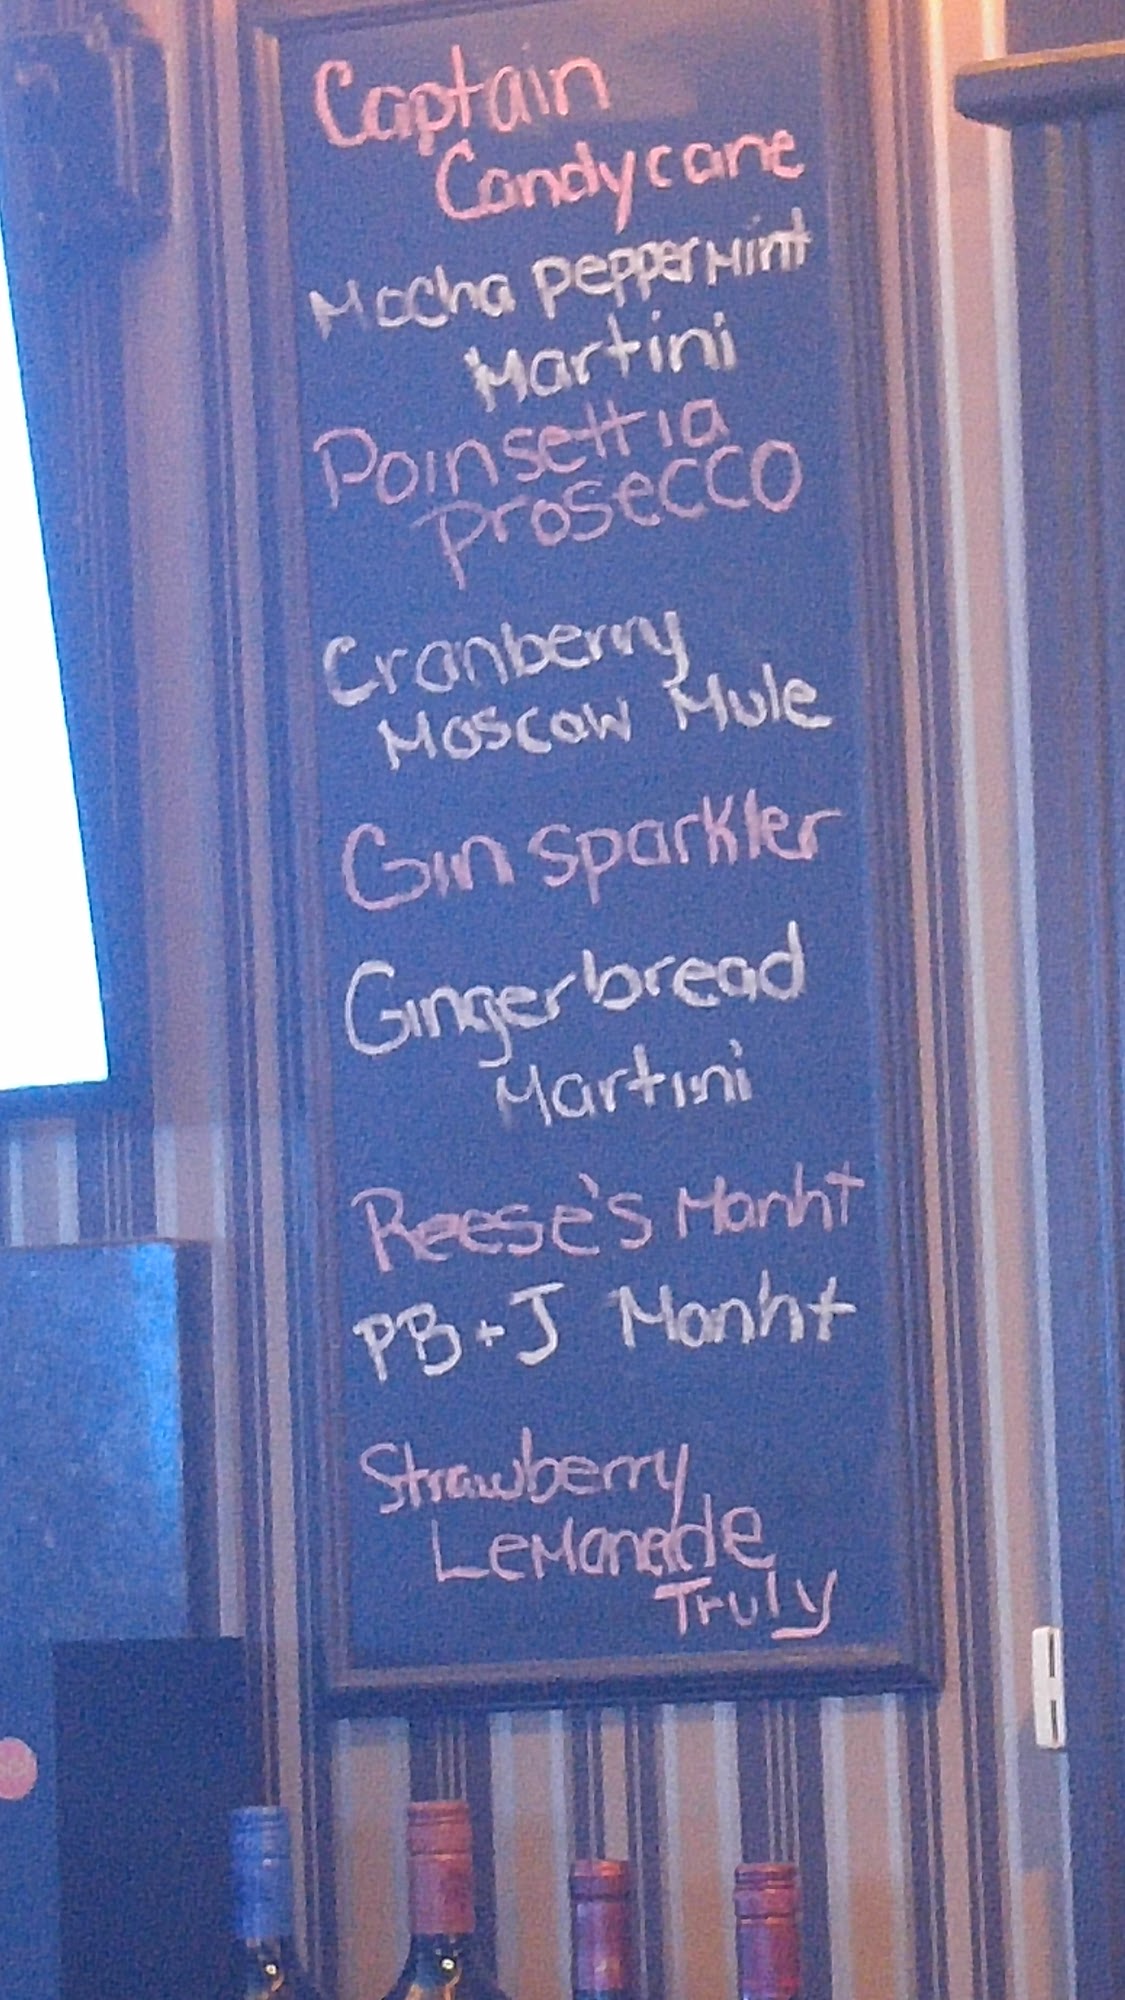 Captain
Candycane
Mocha peppermint
Martini
Poinsettia
Prosecco
Cranberry
Moscow Mule
Gin Sparkler
Gingerbread
Martini
Reese's Manht
PB+J Manht
Strawberry
Lemonade
Truly